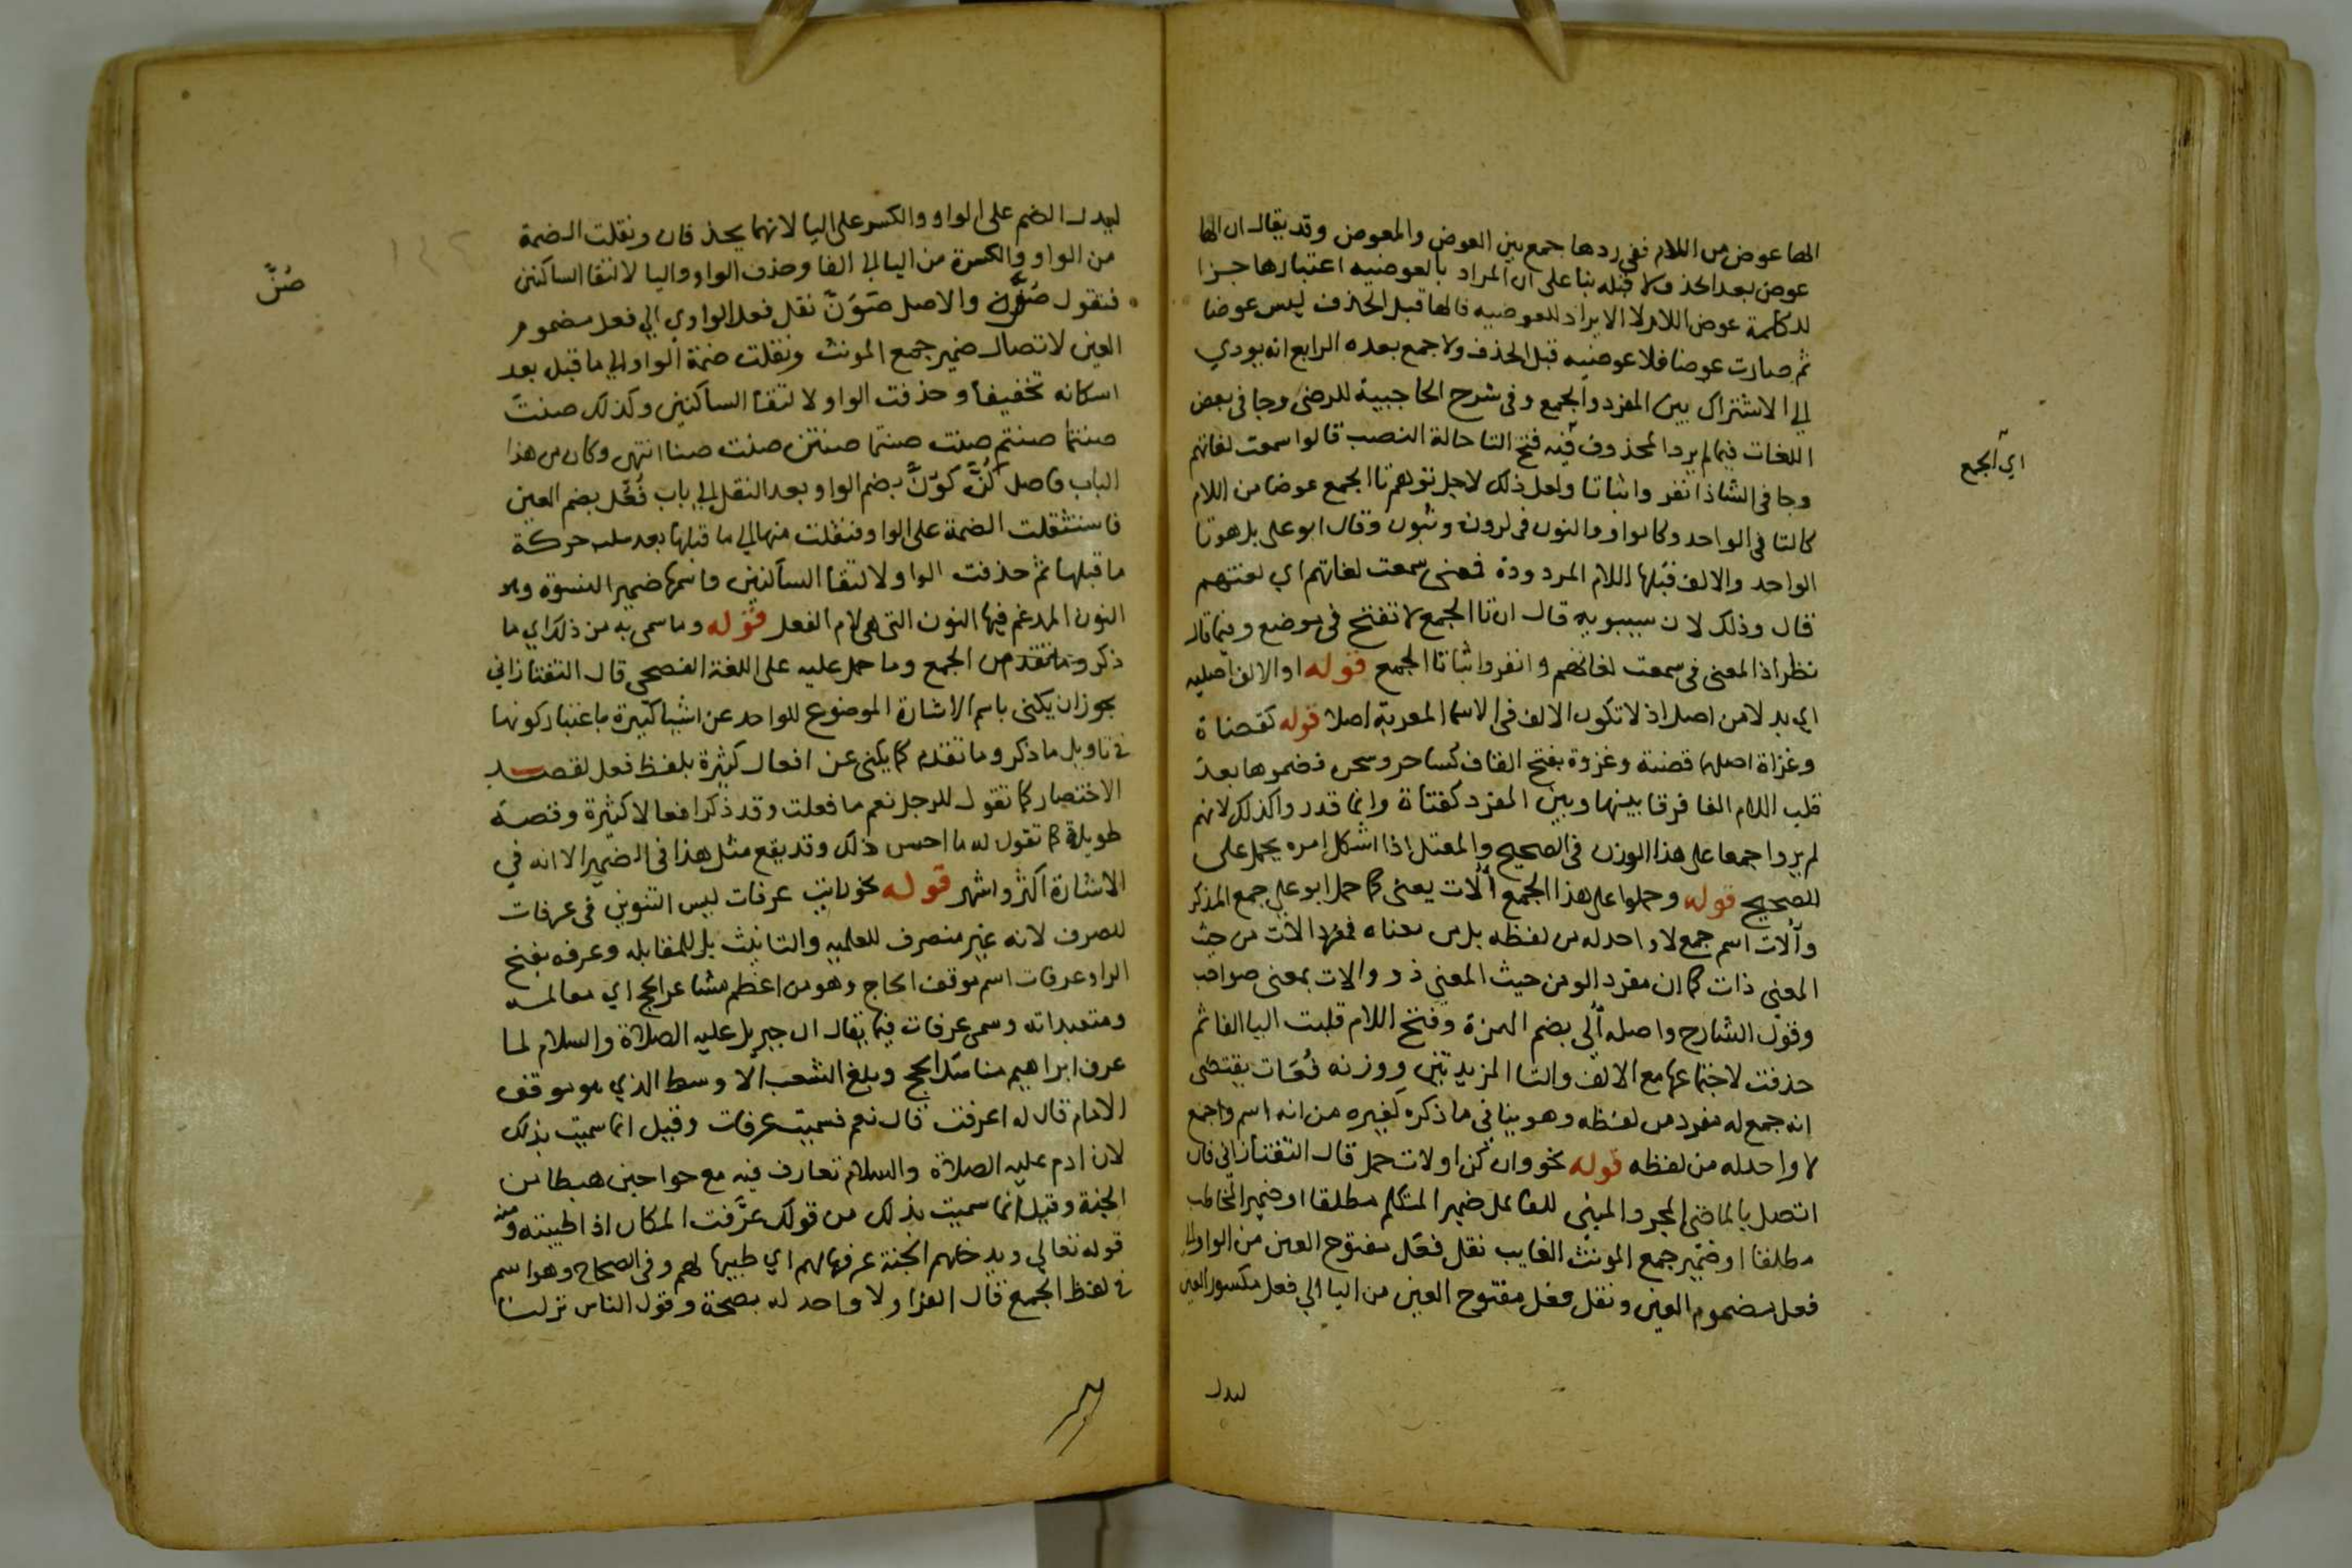 الها عوض من اللام ففي ردها جمع بين العوض والمعوض وقد يقال ان الها
عوض بعد الحذف لا قبله بنا على ان المراد بالعوضيه اعتبارها جزا
للكلمة عوض اللام لا الايراد للعوضيه فالها قبل الحذف ليس عوضا
ثم صارت عوضا فلا عوضيه قبل الحذف ولا جمع بعده الرابع انه يودي
الي الاشتراك بين المفرد والجمع وفي شرح الحاجبية للرضي وجا في بعض
اللغات فيما لم يرد المحذوف فيه فتح التا حالة النصب قالوا سمعت لغاتهم
اي الجمع
وجا في الشاذ انفروا ثباتا ولعل ذلك لاجل توهم تا الجمع عوضا من اللام
كالتا في الواحد وكالواو والنون في كرون وثبون وقال ابو علي بل هو تا
الواحد والالف قبلها اللام المردودة فمعني سمعت لغاتهم اي لغتهم
قال وذلك لان سيبويه قال ان تا الجمع لا تفتح في موضع وفيما قال
نظر اذ المعني في سمعت لغاتهم وانفروا ثباتا الجمع قوله او الالف اصليه
اي بدلا من اصل اذ لا تكون الالف في الاسما المعربة اصلا قوله كقضاة
وغزاة اصلها قضية وغزوة بفتح القاف كساحر وسحره فضموها بعد
قلب اللام الفا فرقا بينها وبين المفرد كفتاة وانما قدروا كذلك لانهم
لم يروا جمعا على هذا الوزن في الصحيح والمعتل اذا اشكل امره يحمل على
الصحيح قوله وحملوا على هذا الجمع اُلات يعني كما حمل ابو على جمع المذكر
وآلات اسم جمع لا واحد له من لفظه بل من معناه فمفرد الات من حيث
المعني ذات كما ان مفرد الو من حيث المعني ذو والات بمعني صواحب
وقول الشارح واصله اُلَي بضم الهمزة وفتح اللام قلبت اليا الفا ثم
حذفت لاجتماعها مع الالف والتا المزيدتين ووزنه فُعَات يقتضي
انه جمع له مفرد من لفظه وهو ينافي ما ذكره كغيره من انه اسم جمع
لا واحد له من لفظه قوله نحو وان كن اولات حمل قال التفتازاني فان
اتصل بالماضي المجرد المبني للفاعل ضمير المتكلم مطلقا او ضمير المخاطب
مطلقا او ضمير جمع المونث الغايب نقل فعَل مفتوح العين من الواو الي
فعل مضموم العين ونقل فعل مفتوح العين من اليا الي فعل مكسور العين
ليدل
ليدل الضم على الواو والكسر على اليا لانهما يحذفان ونقلت الضمة
من الواو والكسرة من اليا الي الفا وحذف الواو واليا لالتقا الساكنين
فتقول صُنَّ والاصل صَوَنَّ نقل فعل الواوي الي فعل مضموم
صُنَّ
العين لاتصال ضمير جمع المونث ونقلت ضمة الواو الي ما قبل بعد
اسكانه تخفيفا وحذفت الواو لالتقا الساكنين وكذلك صنتَ
صنتما صنتم صنت صنتما صنتن صنت صنا انتهي وكان من هذا
الباب فاصل كُنَّ كَوُنَّ بضم الواو بعد النقل الي باب فُعُل بضم العين
فاستثقلت الضمة على الواو فنقلت منها الي ما قبلها بعد سلب حركة
ما قبلها ثم حذفت الواو لالتقا الساكنين واسمها ضمير النسوة وهو
النون المدغم فيها النون التي هي لام الفعل قوله وما سمي به من ذلك اي ما
ذكر وما تقدم من الجمع وما حمل عليه على اللغة الفصحي قال التفتازاني
يجوز ان يكني باسم الاشارة الموضوع للواحد عن اشيا كثيرة باعتبار كونها
في تاويل ما ذكر وما تقدم كما يكني عن افعال كثيرة بلفظ فعل لقصد
الاختصار كما تقول للرجل نعم ما فعلت وقد ذكر افعالا كثيرة وقصة
طويلة كما تقول له ما احسن ذلك وقد يقع مثل هذا في الضمير الا انه في
الاشارة اكثر واشهر قوله نحو رايت عرفات ليس التنوين في عرفات
للصرف لانه غير منصرف للعلميه والتانيث بل للمقابله وعرفه بفتح
الرا وعرفات اسم موقف الحاج وهو من اعظم مشاعر الحج اي معالمه
ومتعبداته وسمي عرفات فيما يقال ان جبريل عليه الصلاة والسلام لما
عرف ابراهيم مناسك الحج وبلغ الشعب الاوسط الذي هو موقف
الامام قال له اعرفت قال نعم فسميت عرفات وقيل انما سميت بذلك
لان ادم عليه الصلاة والسلام تعارف فيه مع حوا حين هبطا من
الجنة وقيل انما سميت بذلك من قولك عرَّفت المكان اذا طيبته ومنه
قوله تعالي ويدخلهم الجنة عرفها لهم اي طيبها لهم وفي الصحاح وهو اسم
في لفظ الجمع قال الفرا ولا واحد له بصحة وقول الناس نزلنا